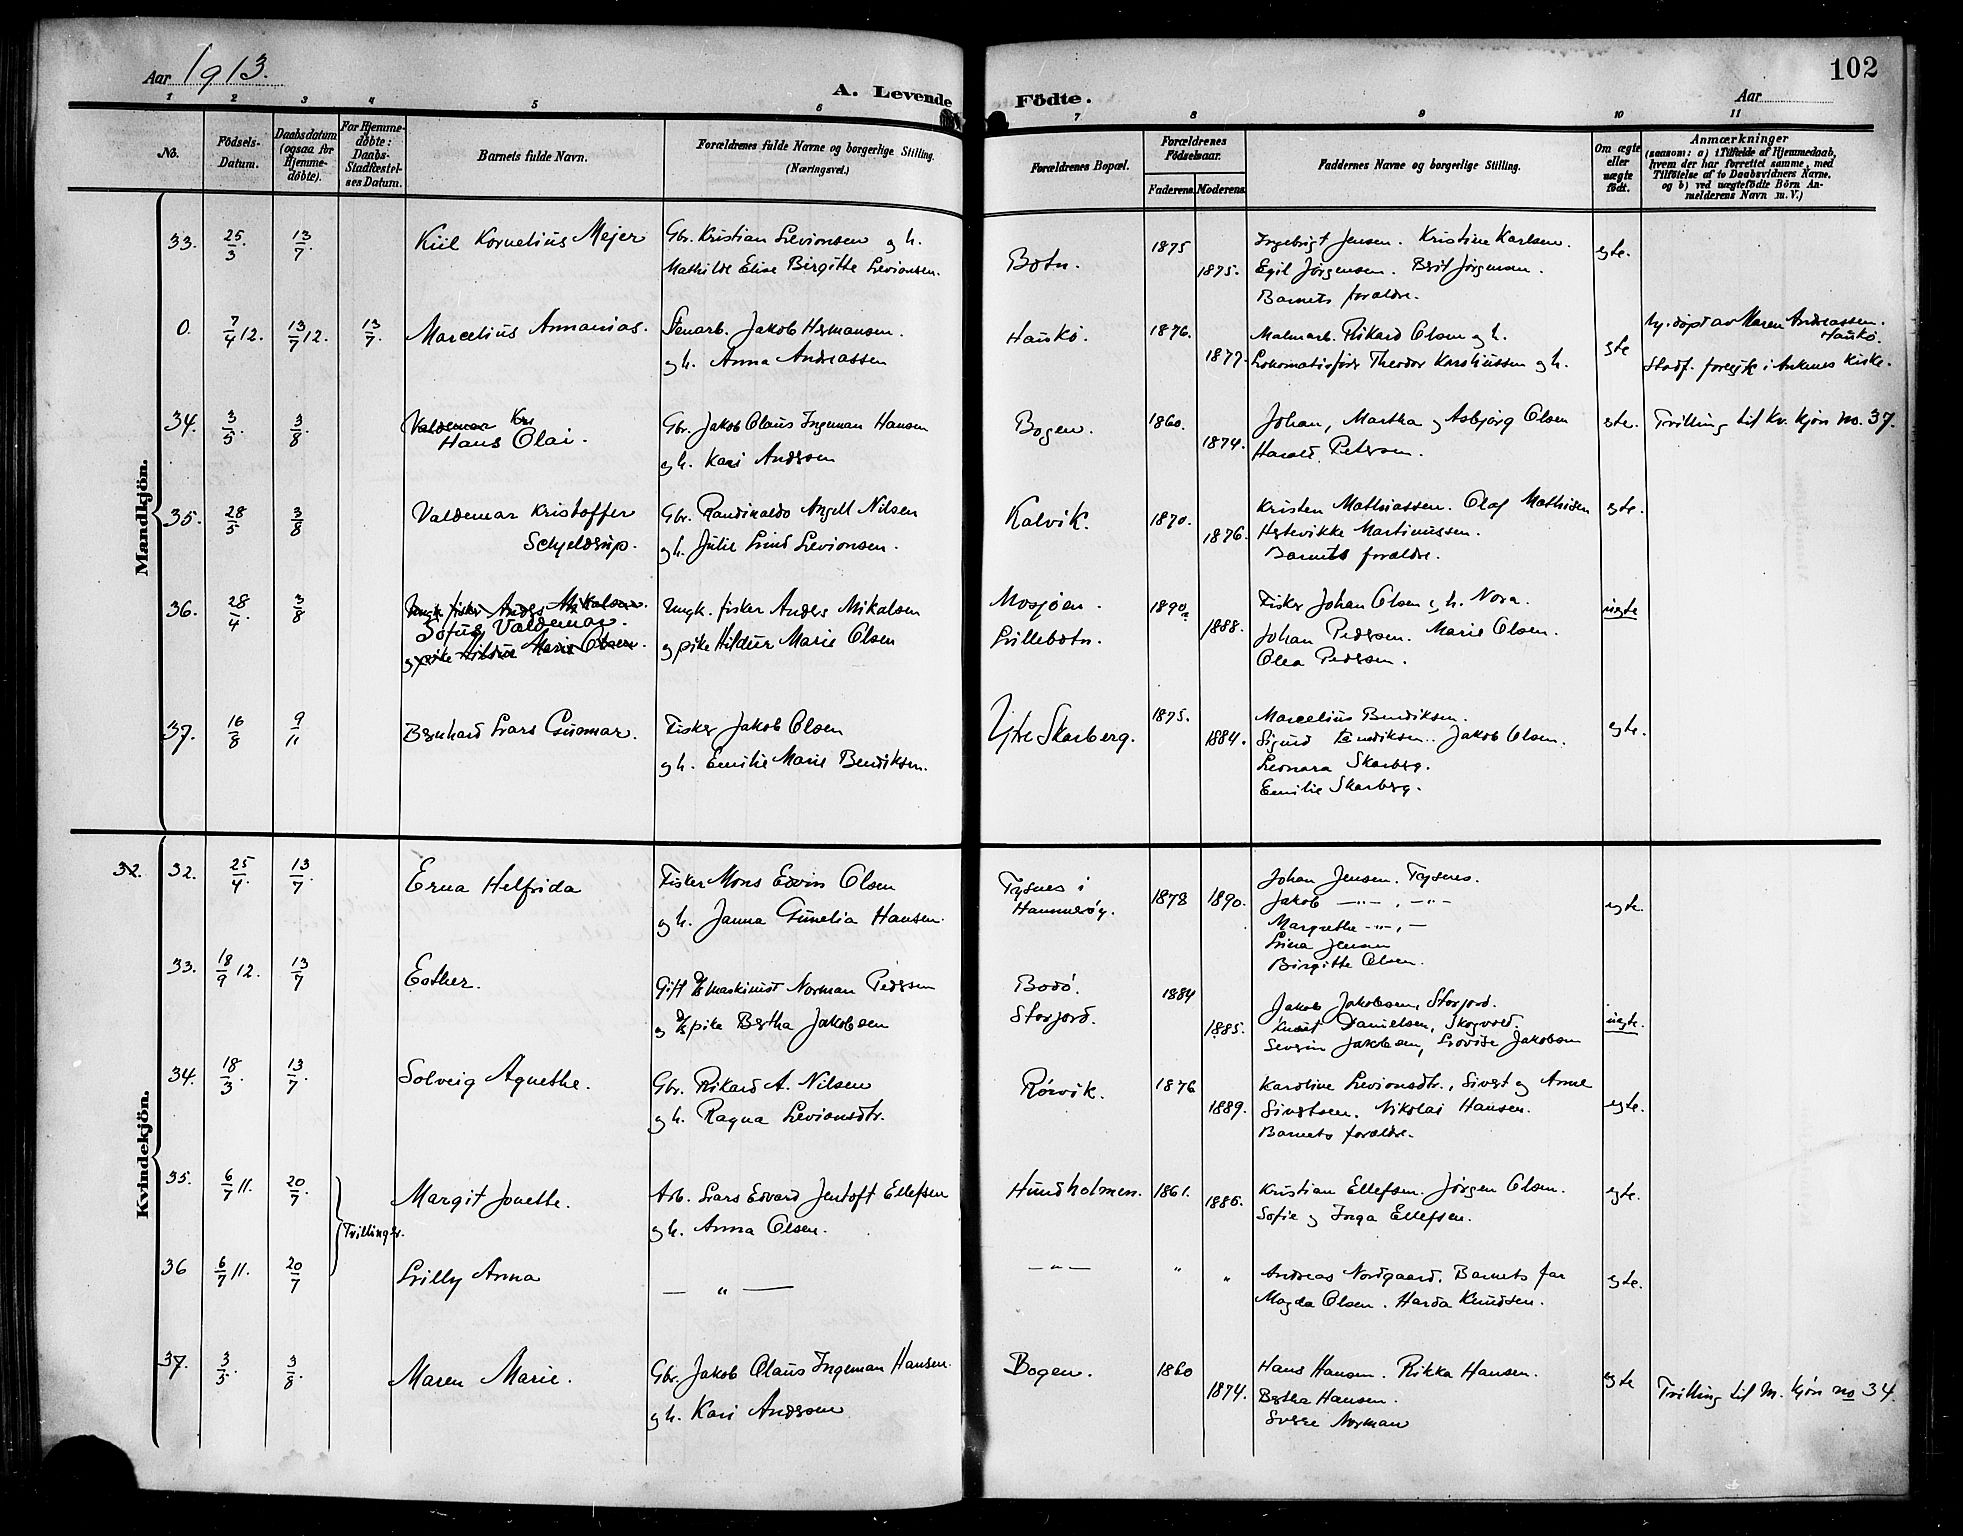 Aar 1913.
A. Levende
Födte.
102
Aar
1 2 3 4 5 6 7 8 9 10 11
No.
Födsels-
Datum.
Daabsdatum
(ogsaa for
Hjemme-
döbte).
For Hjemme-
döbte:
Daabs-
Stadfæstel-
ses Datum.
Barnets fulde Navn.
Forældrenes fulde Navne og borgerlige Stilling.
(Næringsvei.)
Forældrenes Bopæl.
Forældrenes
Födselsaar.
Faderens. Moderens.
Faddernes Navne og borgerlige Stilling.
Om ægte
eller
uægte
födt.
Anmærkninger
(saasom: a) i Tilfælde af Hjemmedaab,
hvem der har forrettet samme, med
Tilföielse af to Daabsvidners Navne,
og b) ved uægtefödte Börn An-
melderens Navn m. V.)
Mandkjön.
33. 25/3. 13/7. Kiil Kornelius Mejer Gbr. Kristian Levionsen og h. Botn. 1875 Ingebrigt Jensen. Kristine Karlsen. egte.
Mathilde Elise Birgitte Levionsen. 1875. Egil Jörgensen. Brit Jörgensen.
Barnets forældre.
0. 7/4 12. 13/7 12. 13/7. Marcelius Annanias. Stenarb. Jakob Hermansen. Haukö. 1876. Malmarb. Rikard Olsen og h. egte Hj. döpt av Maren Andreassen.
Haukö.
og h. Anna Andreassen 1877. Lokomotivförer Theodor Karoliussen og h. Stadf. foregik i Ankenes Kirke.
34. 3/5. 3/8. Valdemar Kri
Hans Olai. Gbr. Jakob Olaus Ingeman Hansen Bogen. 1860. Johan, Martha og Asbjörg Olsen egte. Tvilling til Kv. kjön no. 37.
og h. Kari Andersen 1874. Harald Petersen.
35. 28/5 3/8 Valdemar Kristoffer Gbr. Randinaldo Angell Nilsen Kalvik. 1870. Kristen Mathiassen. Olaf Mathisen egte.
Schjelderup. og h. Julie Lind Levionsen. 1876. Hertevikke Martinussen.
Barnets forældre.
36. 28/4. 3/8 Ungk. fisker Anders Mikalsen.
Sofus Valdemar.
og pike Hildur Marie Olsen. Ungk. fisker Anders Mikalsen Mosjöen. 1890. Fisker Johan Olsen og h. Nora. uegte
og pike Hildur Marie Olsen Lillebotn. 1888. Johan Pedersen. Marie Olsen.
Olea Pedersen.
37. 16/8 9/11 Bernhard Lars Gunnar. Fisker Jakob Olsen Ytre Skarberg. 1875. Marcelius Bendiksen. egte.
og h. Emilie Marie Bendiksen. 1884. Sigurd Bendiksen. Jakob Olsen.
Leonara Skarberg.
Emilie Skarberg.
Kvindekjön.
32. 32. 25/4. 13/7. Erna Helfrida Fisker Mons Edvin Olsen Tysnes i
Hammeröy. 1878 1890. Johan Jensen. Tysnes. egte.
og h. Janna Gunelia Hansen. Jakob —"— , —"—
Margrethe —"— , —
Lina Jensen
Birgitte Olsen.
33. 18/9 12. 13/7 Esther. Gift d/s maskinist Norman Pedersen Bodö. 1884 Jakob Jakobsen, Storjord. uegte.
og d/s pike Bertha Jakobsen Storjord. 1885. Knut Danielsen, Skogvold.
Severin Jakobsen, Lovise Jakobsen
34. 18/3. 13/7. Solveig Agnethe. Gbr. Rikard A. Nilsen Rörvik. 1876 Karoline Levionsdtr., Sivert og Anne egte.
og h. Ragna Levionsdtr. 1889. Sivertsen. Nikolai Hansen.
Barnets forældre.
35. 6/7 11. 20/7. Margit Jonette. Arb. Lars Edvard Jentoft Ellefsen Hundholmen. 1861. Kristian Ellefsen. Jörgen Olsen. egte.
Tvillinger. og h. Anna Olsen. 1886. Sofie og Inga Ellefsen.
36 6/7 11. 20/7 Lilly Anna — " — — " — " " Andreas Nordgaard. Barnets far egte.
Magda Olsen. Harda Knudsen.
37. 3/5. 3/8. Maren Marie. Gbr. Jakob Olaus Ingeman Hansen. Bogen. 1860 Hans Hansen. Rikka Hansen. egte
og h. Kari Andersen 1874. Bertha Hansen. Tvilling til M. kjön no 34.
Sverre Norman